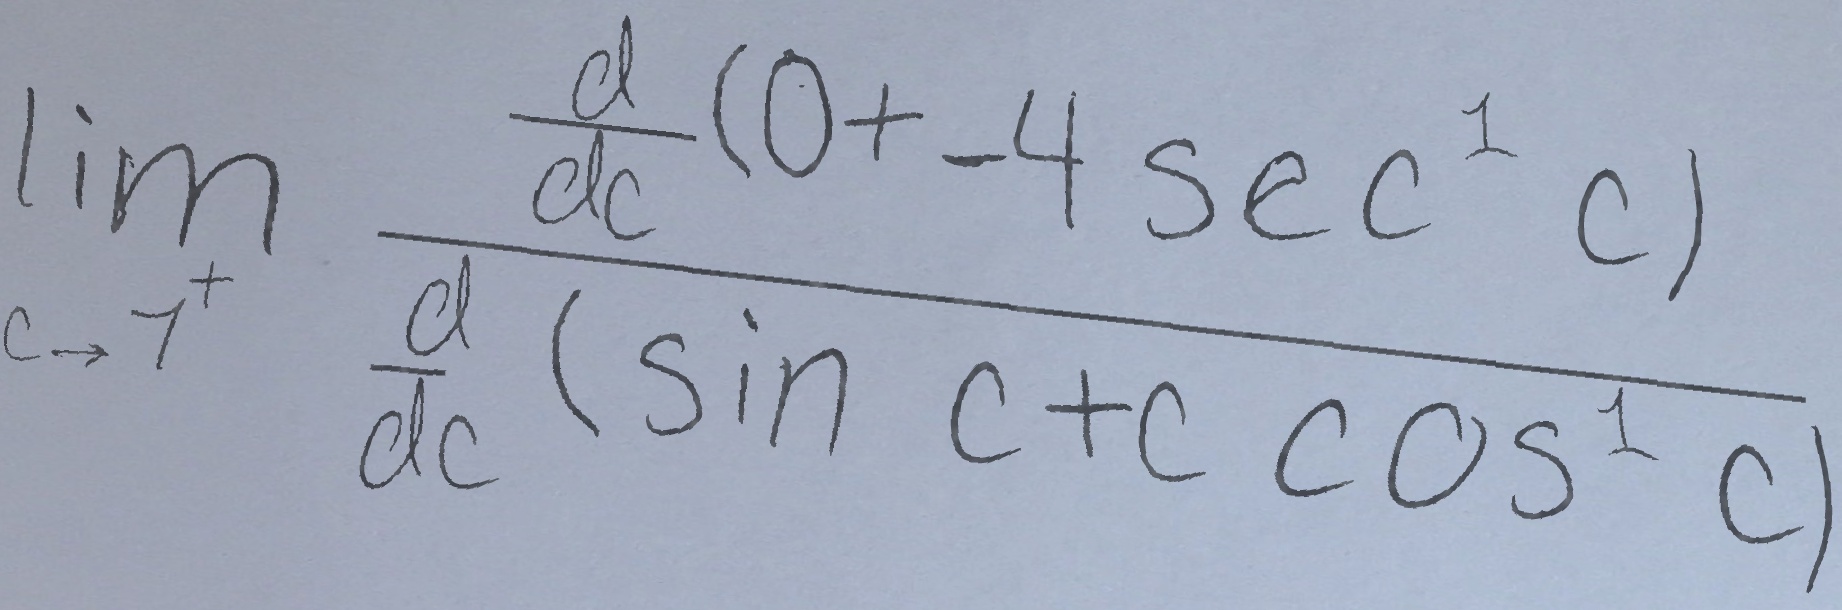 \lim_{c \to 7^+} \frac{\frac{d}{dc}(0+-4\sec^1 c)}{\frac{d}{dc}(\sin c+c\cos^1 c)}